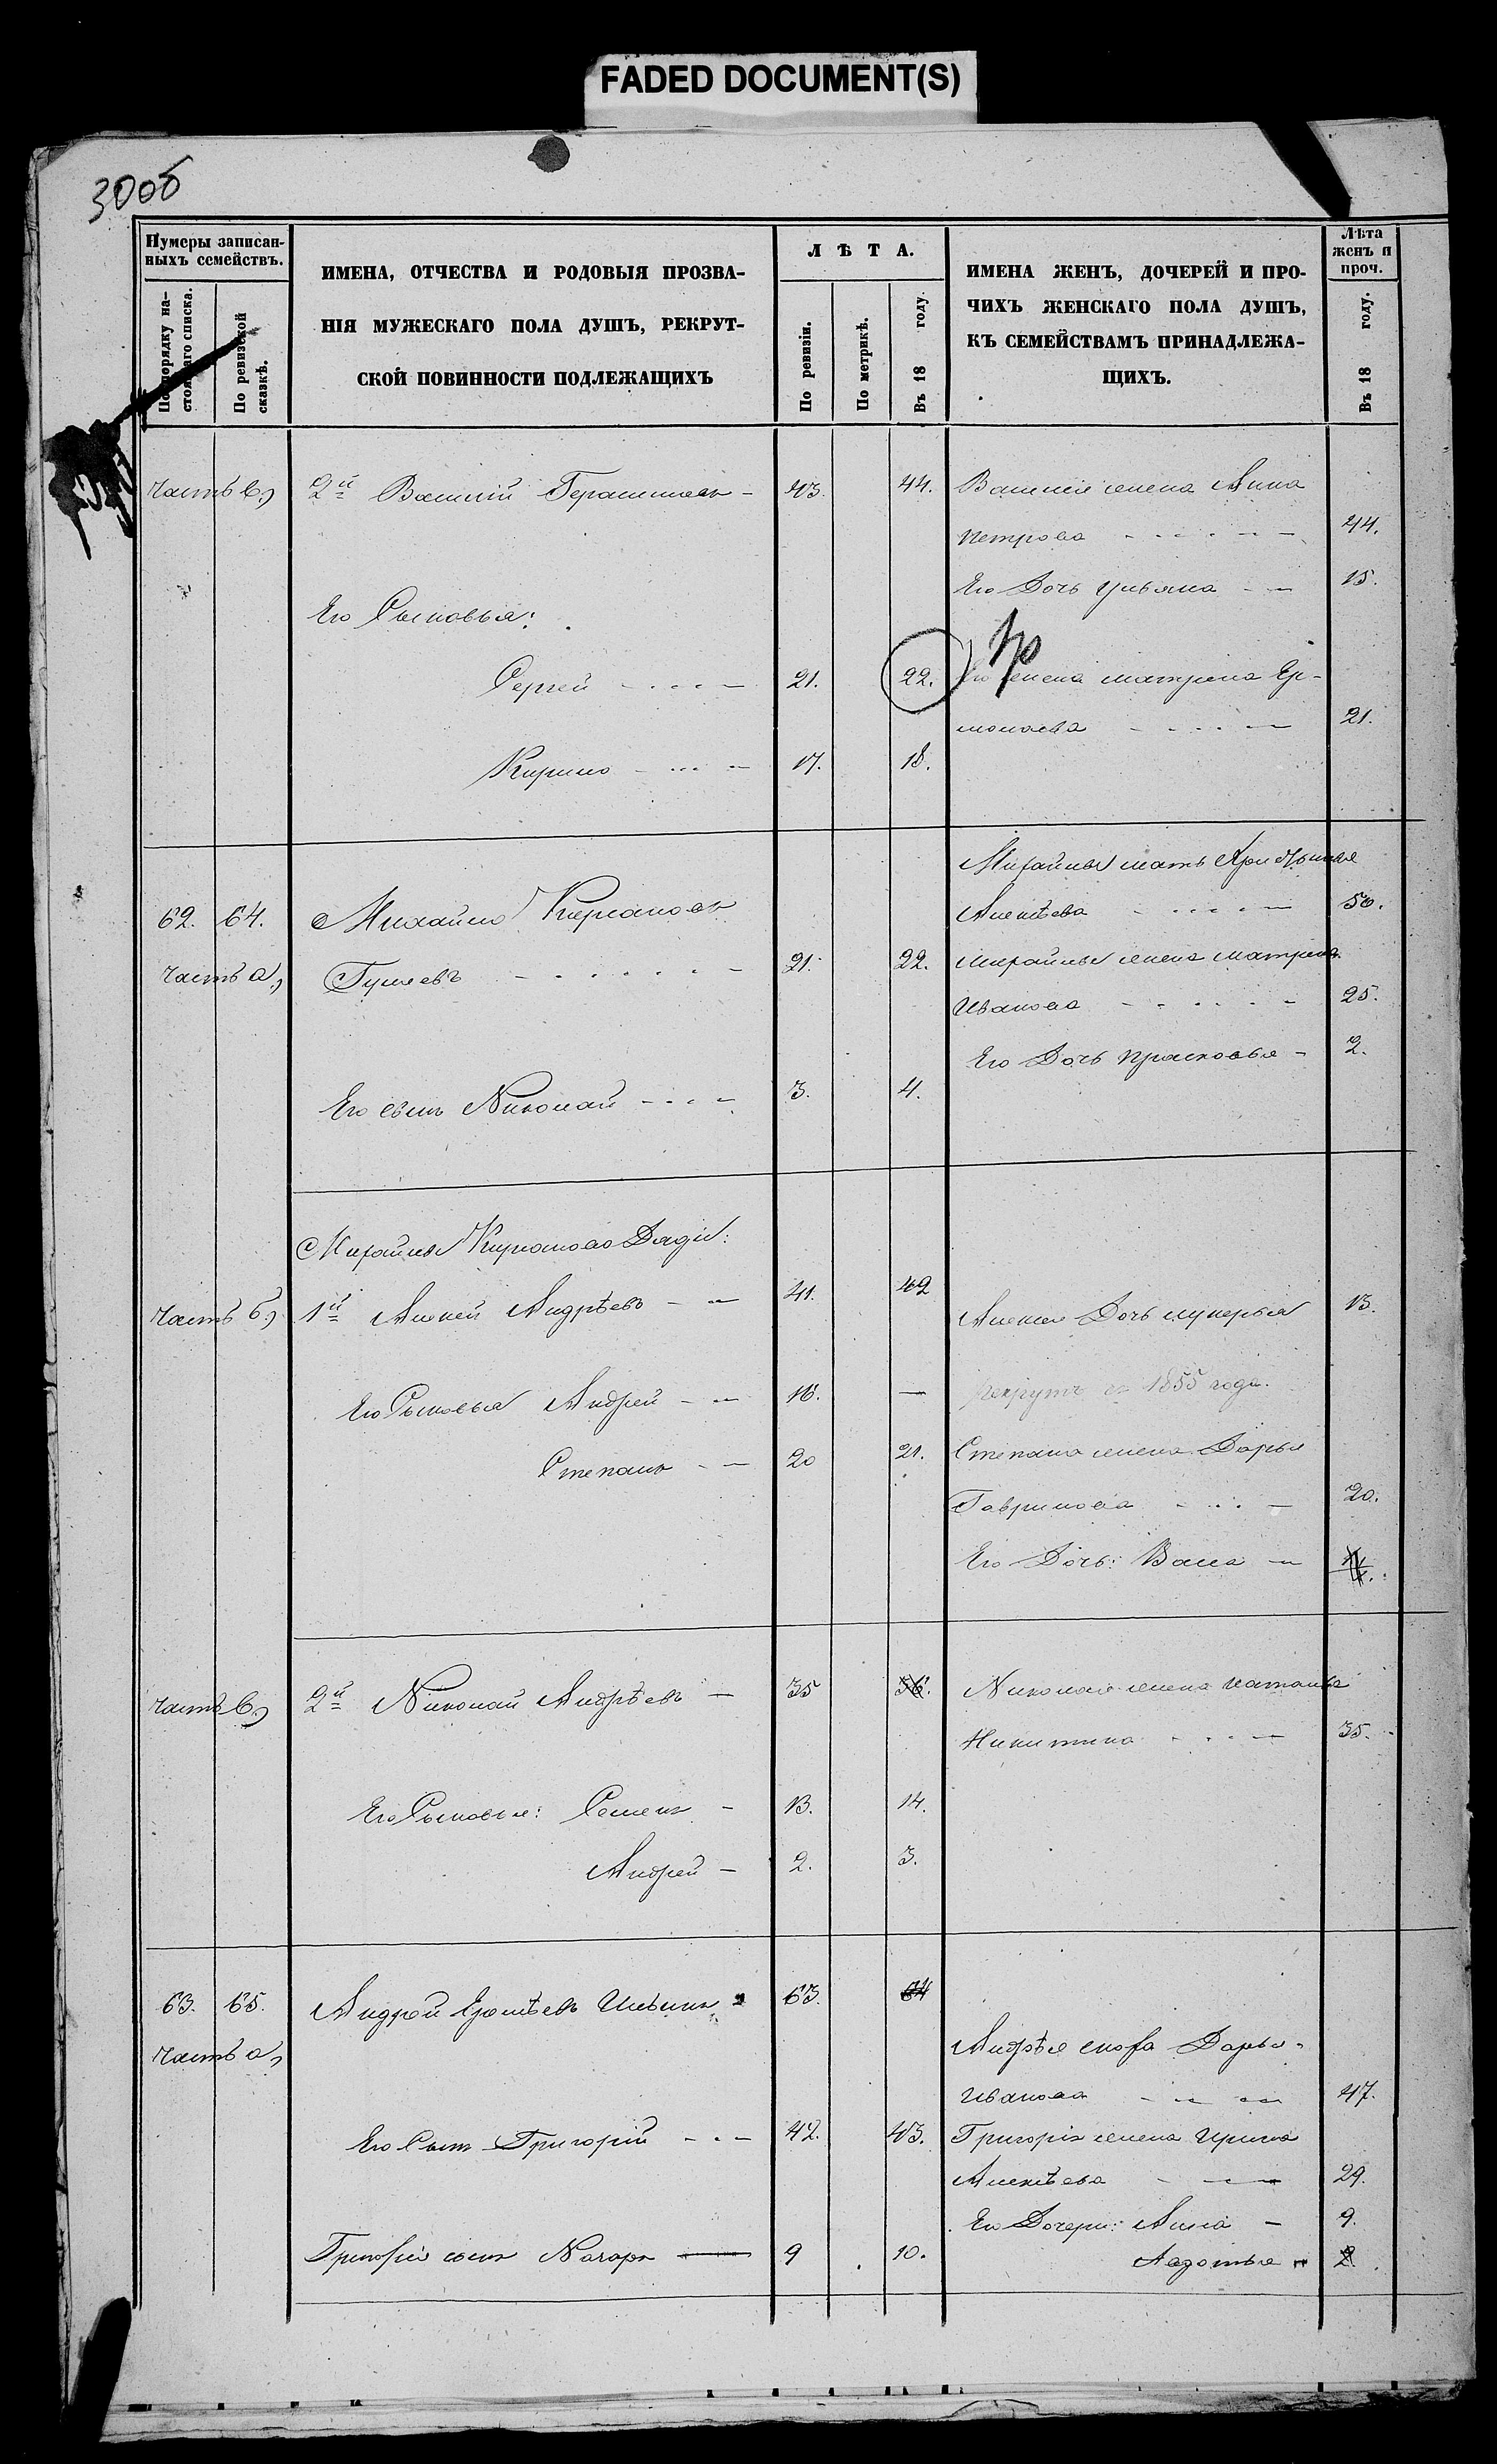 FADED DOCUMENT(S)
30об
Нумеры записан-
ныхъ семействъ.
По порядку на-
стоящаго списка.
По ревизской
сказкѣ.
ИМЕНА, ОТЧЕСТВА И РОДОВЫЯ ПРОЗВА-
НІЯ МУЖЕСКАГО ПОЛА ДУШЪ, РЕКРУТ-
СКОЙ ПОВИННОСТИ ПОДЛЕЖАЩИХЪ
ЛѢТА.
По ревизіи.
По метрикѣ.
Въ 18 году.
ИМЕНА ЖЕНЪ, ДОЧЕРЕЙ И ПРО-
ЧИХЪ ЖЕНСКАГО ПОЛА ДУШЪ,
КЪ СЕМЕЙСТВАМЪ ПРИНАДЛЕЖА-
ЩИХЪ.
Лѣта
женъ и
проч.
Въ 18 году.
часть в,) 2й Василій Герасимовъ - 43. 44. Василія жена Анна
Петрова - - - - - 44.
Его Дочь Ульяна - - 15.
Его Сыновья:
Сергей - - - - 21. 22. Его жена Матрена Ер-
молаева - - - - 21.
Кирило - - - - 17. 18.
Михайлы мать
62. 64. Михайло Кирсановъ
Алексѣева - - - - 50.
часть а,) Гуляевъ - - - - - - 21. 22. Михайлы жена Матрена
Иванова - - - - - 25.
Его Дочь Прасковья - 2.
Его сынъ Николай - - - 3. 4.
Михайлы Кирсанова Дяди:
часть б,) 1й Алексей Андрѣевъ - - 41. 42
Алексея Дочь Лукерья 13.
Его Сыновья Андрей - - 16. — рекрутъ съ 1855 года.
Степанъ - - 20 21. Степана жена Дарья
Гаврилова - - - - 20.
Его Дочь: Васса -
часть в,) 2й Николай Андрѣевъ - 35 36. Николая жена Наталья
Никитина - - - - 35.
Его Сыновья: Семенъ - 13. 14.
Андрей - 2. 3.
63. 65. Андрей Ильинъ 63. 64
часть а,)
Андрѣя сноха Дарья
Иванова - - - 47.
Его Сынъ Григорій - - - 42. 43. Григорія жена Ирина
Алексѣева - - 29.
Его Дочери: Анна - 9.
Григорія сынъ Назаръ — 9 10.
Авдотья 2.